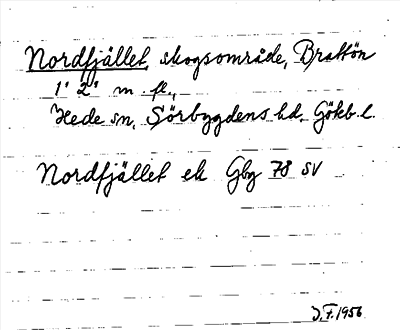 Nordfjället, skogsområde, Brattön
1¹ 2² m. fl.,
Hede sn, Sörbygdens hd. Götkb. l.
Nordfjället ek Gbg 78 SV
J.F. 1956